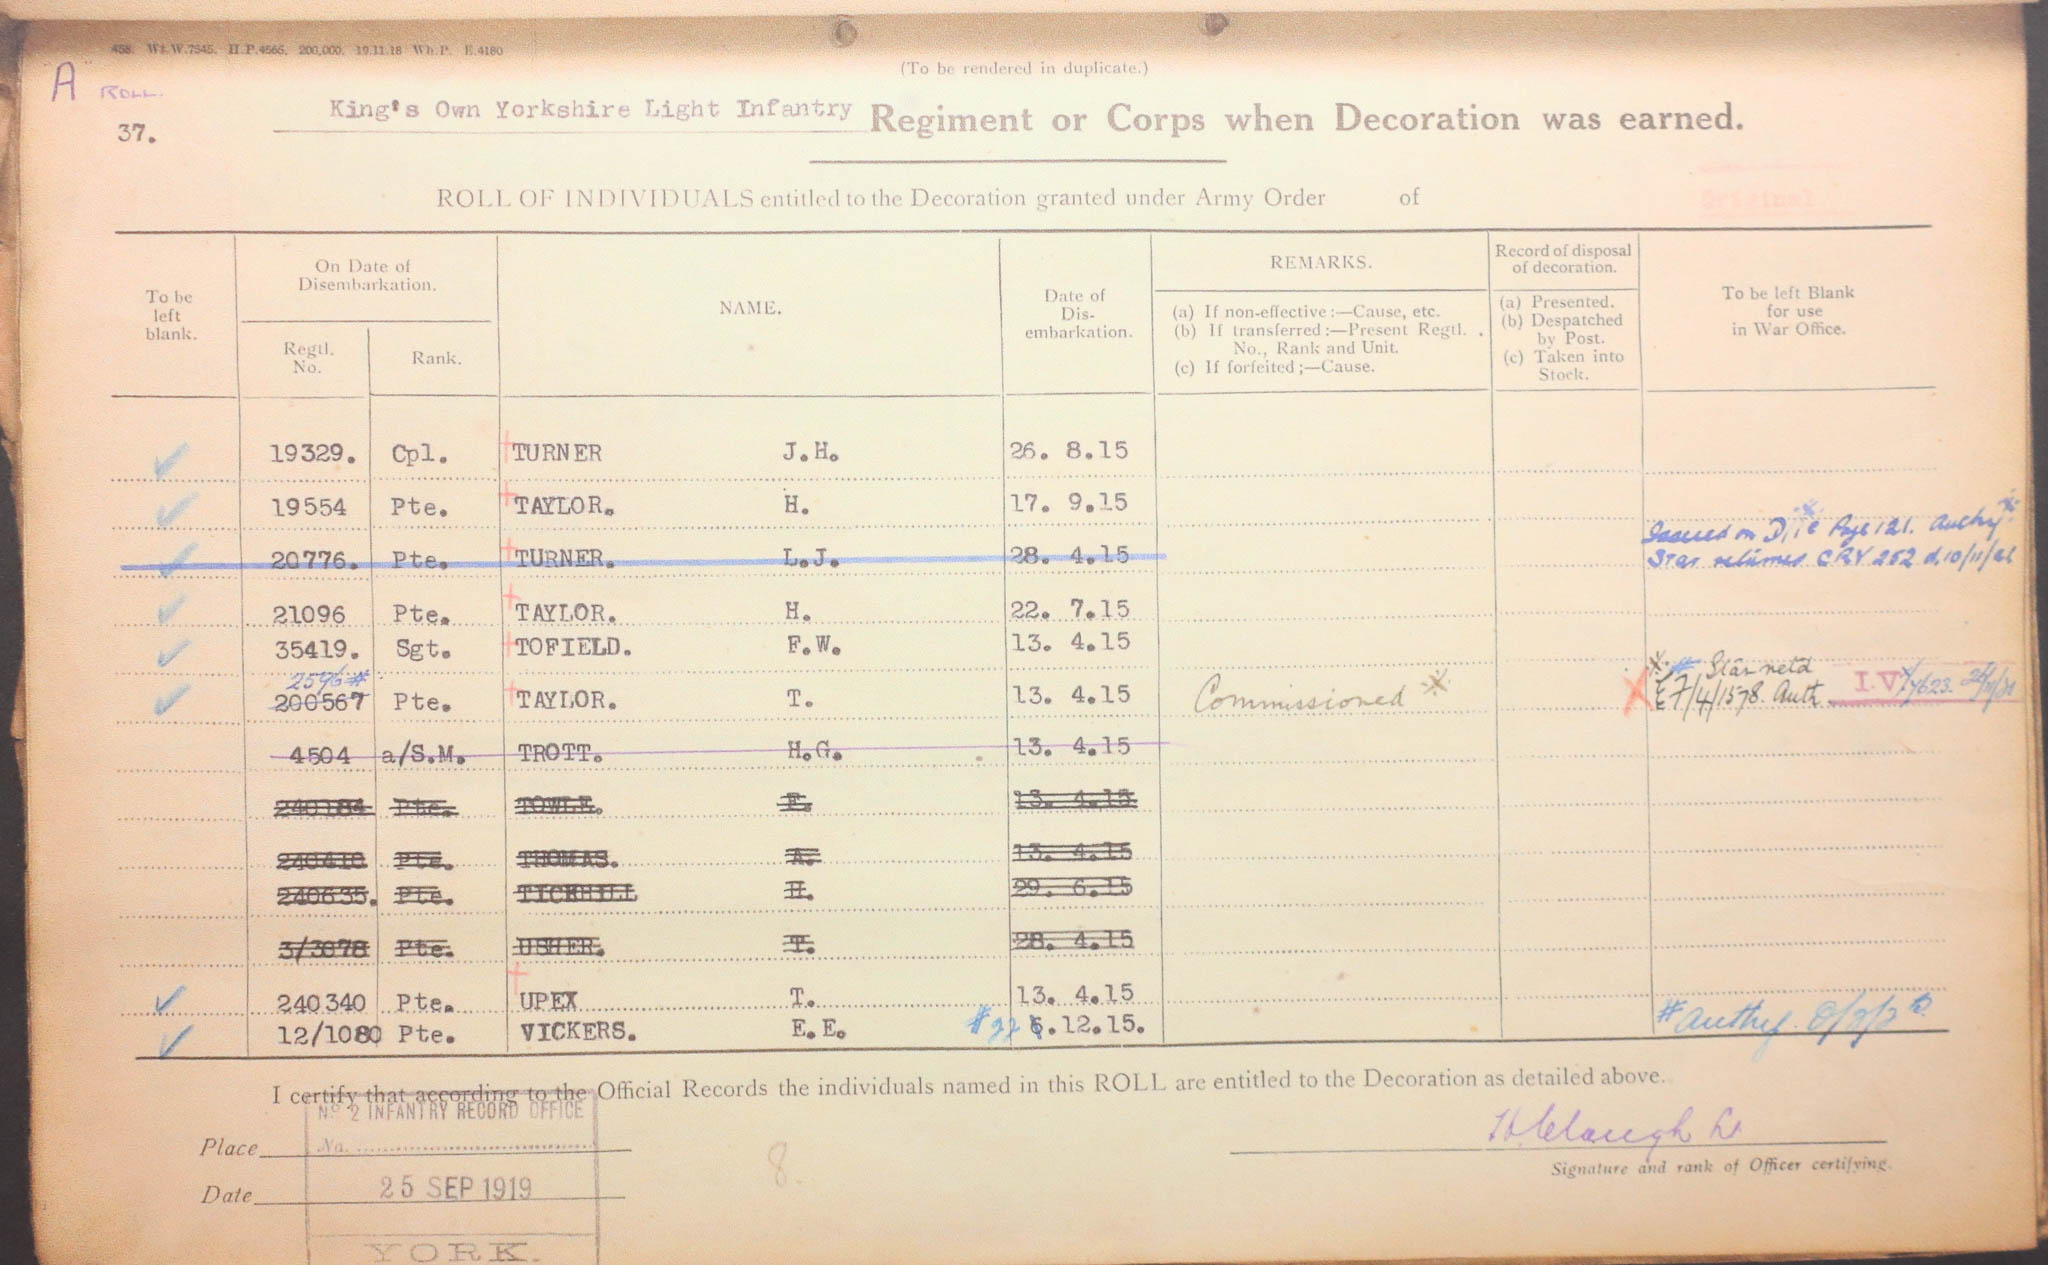 458. Wt.W.7545. H.P.4566. 200,000. 19.11.18 Wh.P. E.4180
(To be rendered in duplicate.)
"A" ROLL.
37.
King's Own Yorkshire Light Infantry Regiment or Corps when Decoration was earned.
ROLL OF INDIVIDUALS entitled to the Decoration granted under Army Order of
Original
To be left blank.
On Date of Disembarkation.
Regtl. No.
Rank.
NAME.
Date of Dis-embarkation.
REMARKS.
(a) If non-effective:—Cause, etc.
(b) If transferred:—Present Regtl. No., Rank and Unit.
(c) If forfeited;—Cause.
Record of disposal of decoration.
(a) Presented.
(b) Despatched by Post.
(c) Taken into Stock.
To be left Blank for use in War Office.
19329. Cpl. TURNER J.H. 26. 8.15
19554 Pte. TAYLOR. H. 17. 9.15
20776. Pte. TURNER. L.J. 28. 4.15 Issued on Page 121. Authy
Star returned CRV 252 d. 10/11/
21096 Pte. TAYLOR. H. 22. 7.15
35419. Sgt. TOFIELD. F.W. 13. 4.15
2596 #
200567 Pte. TAYLOR. T. 13. 4.15 Commissioned # Star retd
E7/4/1578. Auth I.V.
4504 a/S.M. TROTT. H.G. 13. 4.15
240184 Pte. TOWLE. F. 13. 4.15
240410 Pte. THOMAS. A. 13. 4.15
240635. Pte. TICKHILL H. 29. 6.15
3/3078 Pte. USHER. T. 28. 4.15
240340 Pte. UPEX T. 13. 4.15
12/1080 Pte. VICKERS. E.E. # 22 6.12.15. # Authy.
I certify that according to the Official Records the individuals named in this ROLL are entitled to the Decoration as detailed above.
No 2 INFANTRY RECORD OFFICE
Place
No.
Date
25 SEP 1919
YORK.
8.
Signature and rank of Officer certifying.